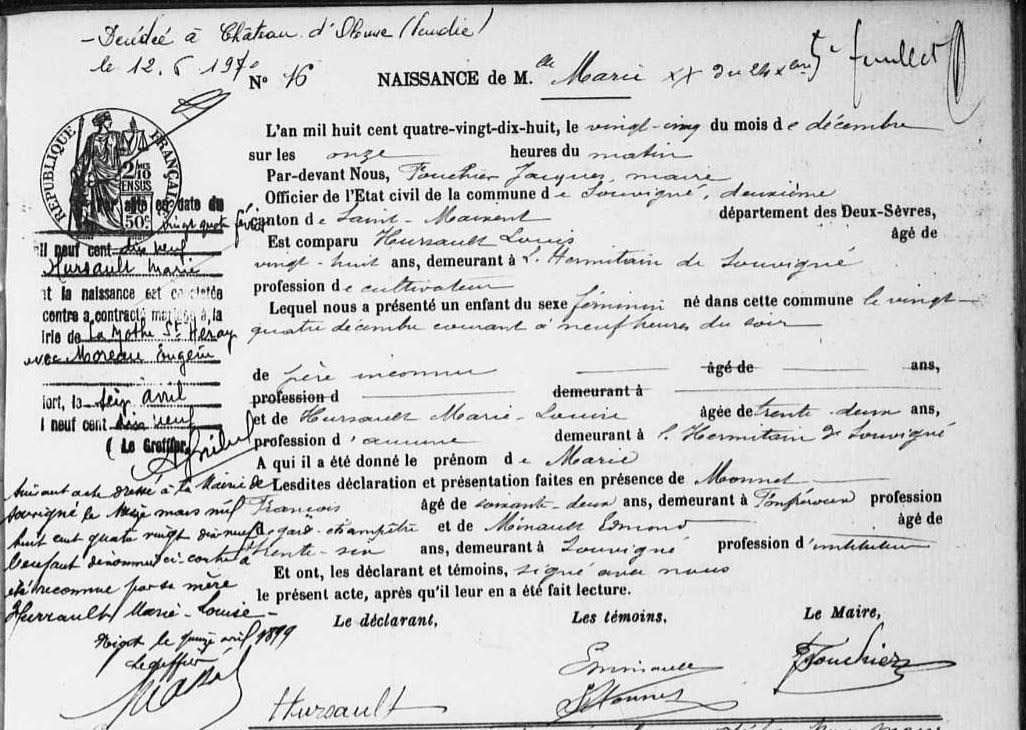 - Décédée à Château d'Olonne (Vendée)
le 12. 6 1970
N° 16 NAISSANCE de M.lle Marie XX du 24 Xbre 5e feuillet
RÉPUBLIQUE FRANÇAISE
2/10 EN SUS
50c.
L'an mil huit cent quatre-vingt-dix-huit, le vingt-cinq du mois de décembre
sur les onze heures du matin
Par-devant Nous, Fouchier Jacques, maire
Officier de l'Etat civil de la commune de Souvigné, deuxième
canton de Saint-Maixent département des Deux-Sèvres,
Est comparu Hursault Louis âgé de
vingt-huit ans, demeurant à L'Hermitain de Souvigné
profession de cultivateur
Lequel nous a présenté un enfant du sexe féminin né dans cette commune le vingt-
quatre décembre courant à neuf heures du soir
de père inconnu âgé de ans,
profession d demeurant à
et de Hursault Marie-Louise âgée de trente-deux ans,
profession d'aucune demeurant à l'Hermitain de Souvigné
A qui il a été donné le prénom de Marie
Lesdites déclaration et présentation faites en présence de Monnet
François âgé de soixante-deux ans, demeurant à profession
de garde-champêtre et de Minault Edmond âgé de
trente-six ans, demeurant à Souvigné profession d'instituteur
Et ont, les déclarant et témoins, signé avec nous
le présent acte, après qu'il leur en a été fait lecture.
Le déclarant, Les témoins, Le Maire,
Hursault
Eminault
Monnet
Fouchier
Par acte en date du
vingt quatre février
mil neuf cent dix neuf
Hursault Marie
nt la naissance est constatée
contre a contracté mariage à la
irie de La Mothe St Héray
avec Moreau Eugène
iort, le seize avril
l neuf cent dix neuf
(Le Greffier,
Suivant acte dressé à la Mairie de
Souvigné le seize mars mil
huit cent quatre vingt dix neuf
l'enfant dénommé ci-contre a
été reconnue par sa mère
Hurrault Marie-Louise-
Niort le quinze avril 1899
Le greffier